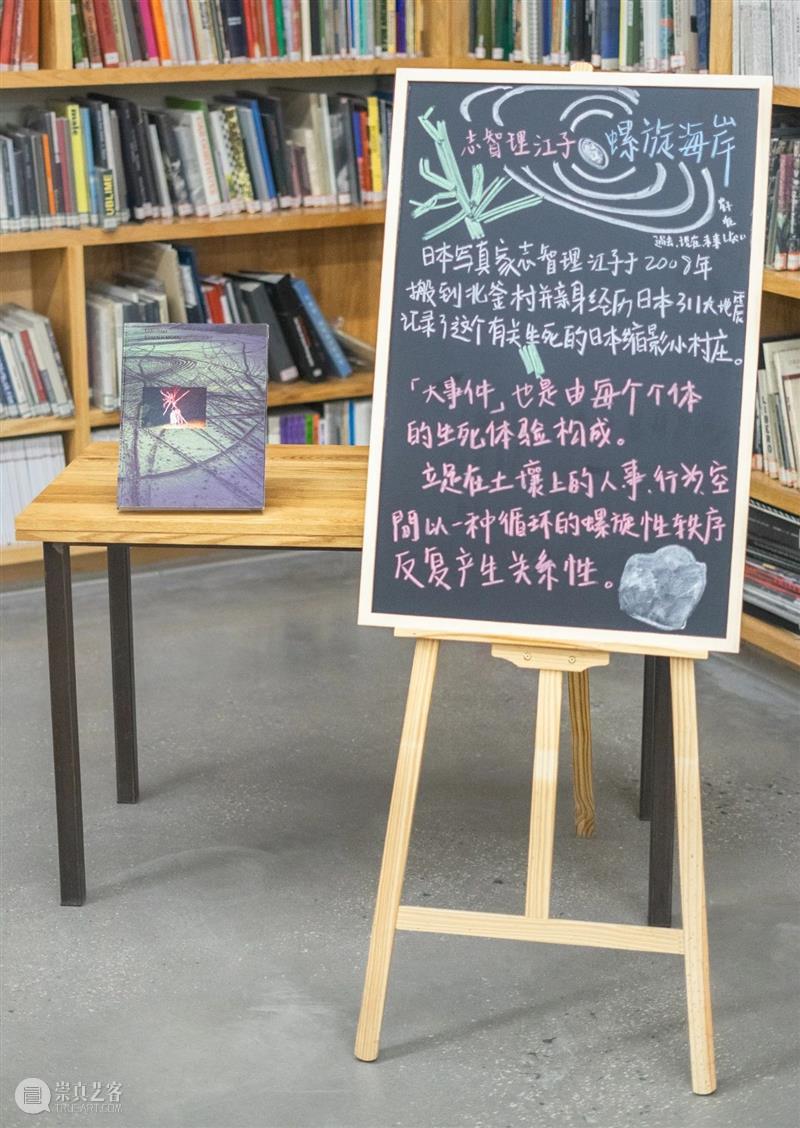 志智理江子 螺旋海岸
过去、现在、未来
日本写真家志智理江子于2009年
搬到北釜村并亲身经历日本311大地震
记录了这个有关生死的日本缩影小村庄。
「大事件」也是由每个个体
的生死体验构成。
立足在土壤上的人事、行为、空
間以一种循环的螺旋性轶序
反复产生关系性。
SUBLIME
崇真艺客
TRUE-ART.COM